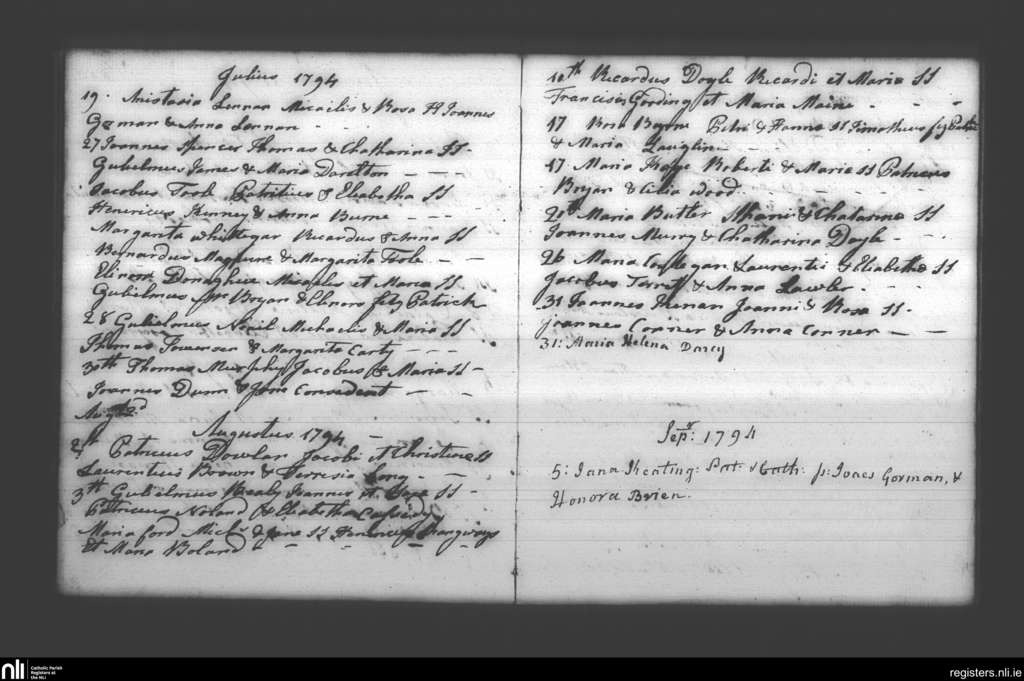 Julius 1794
19. Anistasia Lennan Micaelis & Rosa SS Joannes
Gorman & Anna Lennan
27 Joannes Spencer Thomas & Chatharina SS
Gulielmus James & Maria
Jacobus Toole Patritius & Eliabetha SS
Henericus Kinney & Anna Burne
Margarita Whittegar Ricardus & Anna SS
Bernardus Maguire & Margarita Toole
Elinora Donaghue Micaelis et Maria SS
Gulielmus Bryan & Elinora fitz Patrick
28 Gulielmus Michaelis & Maria SS
Thomas & Margarita Carty
30th Thomas Murphy Jacobus & Maria SS
Joannes Dunn & Jane
Augt 2d
Augustus 1794
2d Patricius Dowlar Jacobi et Christina SS
Laurentius Brown & Terresia Long
3th Gulielmus Healy Joannes et SS
Patricius Noland & Eliabetha Cassidy
Maria ford Micls & Jane SS
et Maria Boland
10th Ricardus Doyle Ricardi et Maria SS
Francisis Gording et Maria Maine
17 Rosa Byrne Petri & SS Timotheus fitz
& Maria
17 Maria Roberti & Maria SS Patricius
Bryan & Cilia Wood
20th Maria Butler & Chatarina SS
Joannes Murry & Chatharina Doyle
26 Maria Laurentii & Eliabetha SS
Jacobus & Anna Lawler
31 Joannes Joannis & Rosa SS
Joannes Corner & Anna Conner
31: Maria Helena Darcy
Sepr: 1794
5: Jana Keating: Pat: & Cath: p: Joaes Gorman, &
Honora Brien.
nli
Catholic Parish
Registers at
the NLI
registers.nli.ie